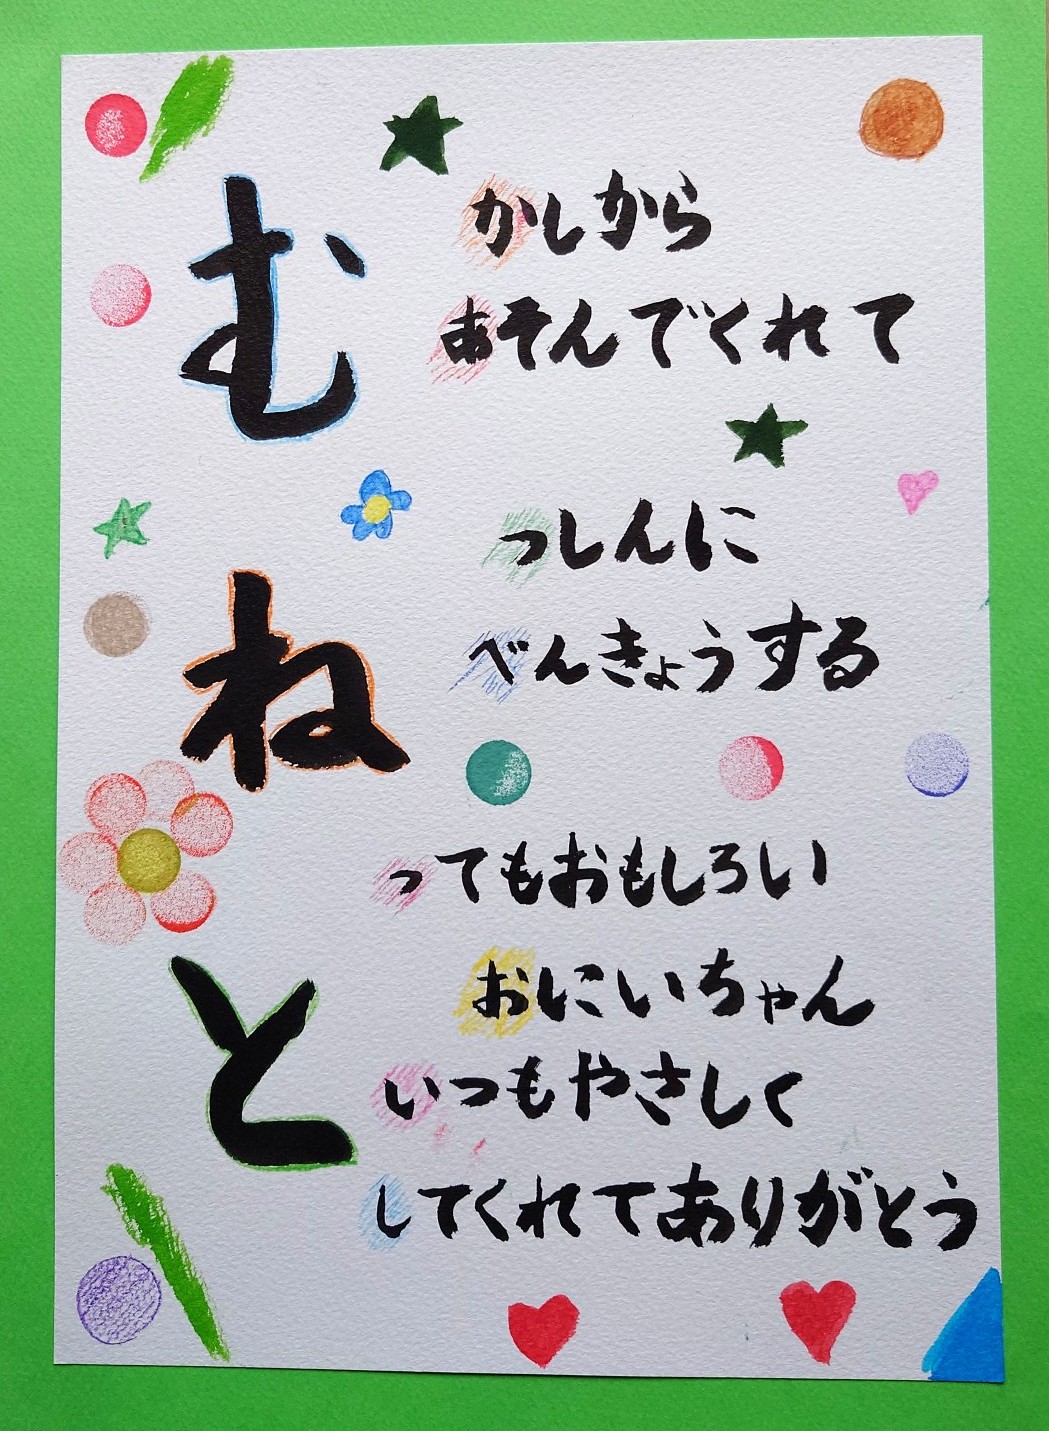 む
かしから
あそんでくれて
ね
っしんに
べんきょうする
と
ってもおもしろい
おにいちゃん
いつもやさしく
してくれてありがとう